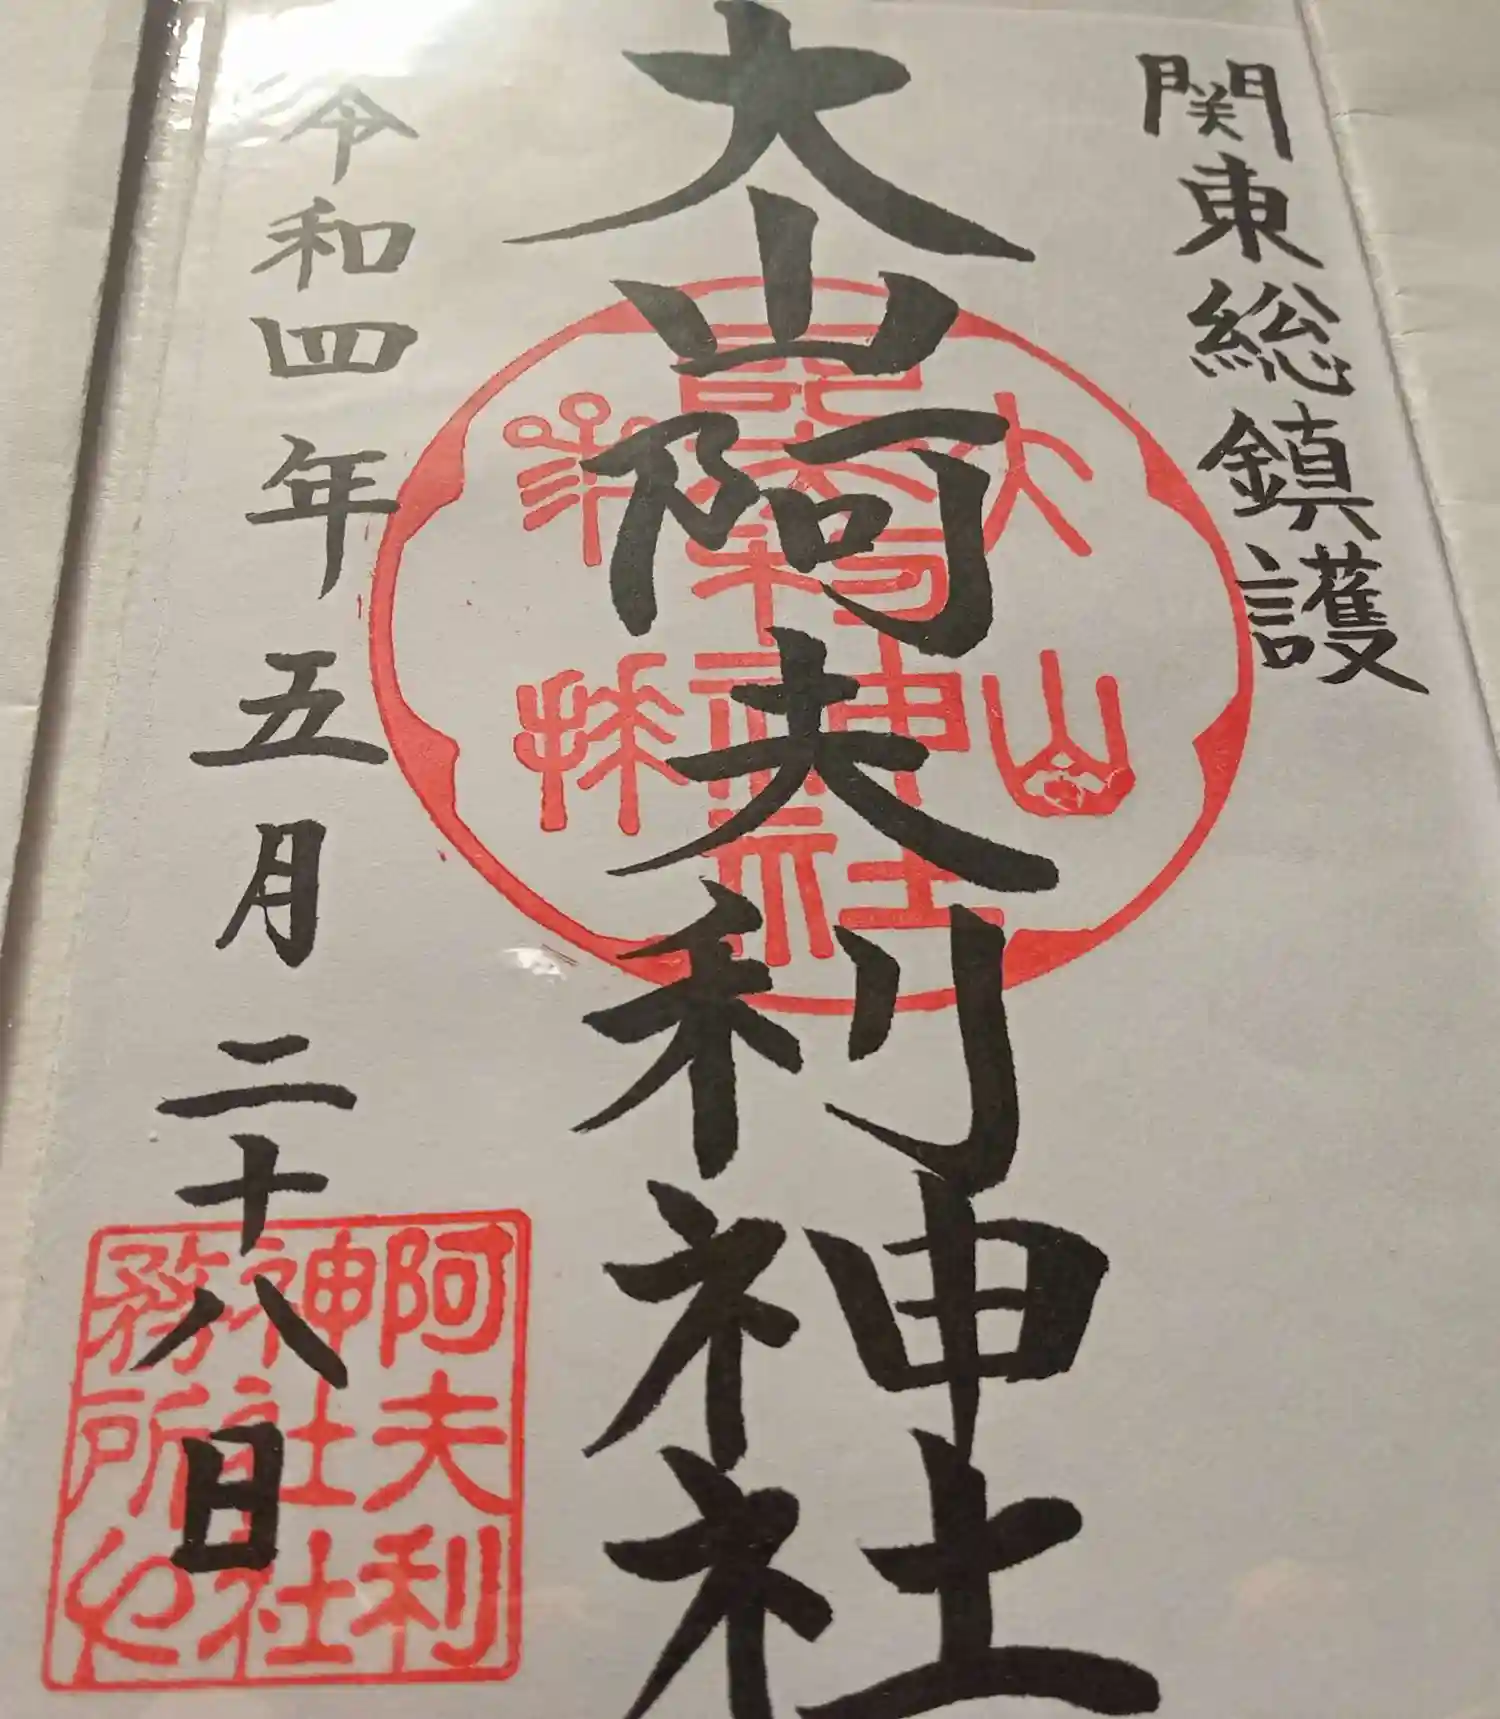 関東総鎮護
大山阿夫利神社
令和四年五月二十八日
大山
阿夫利
神社社
務所